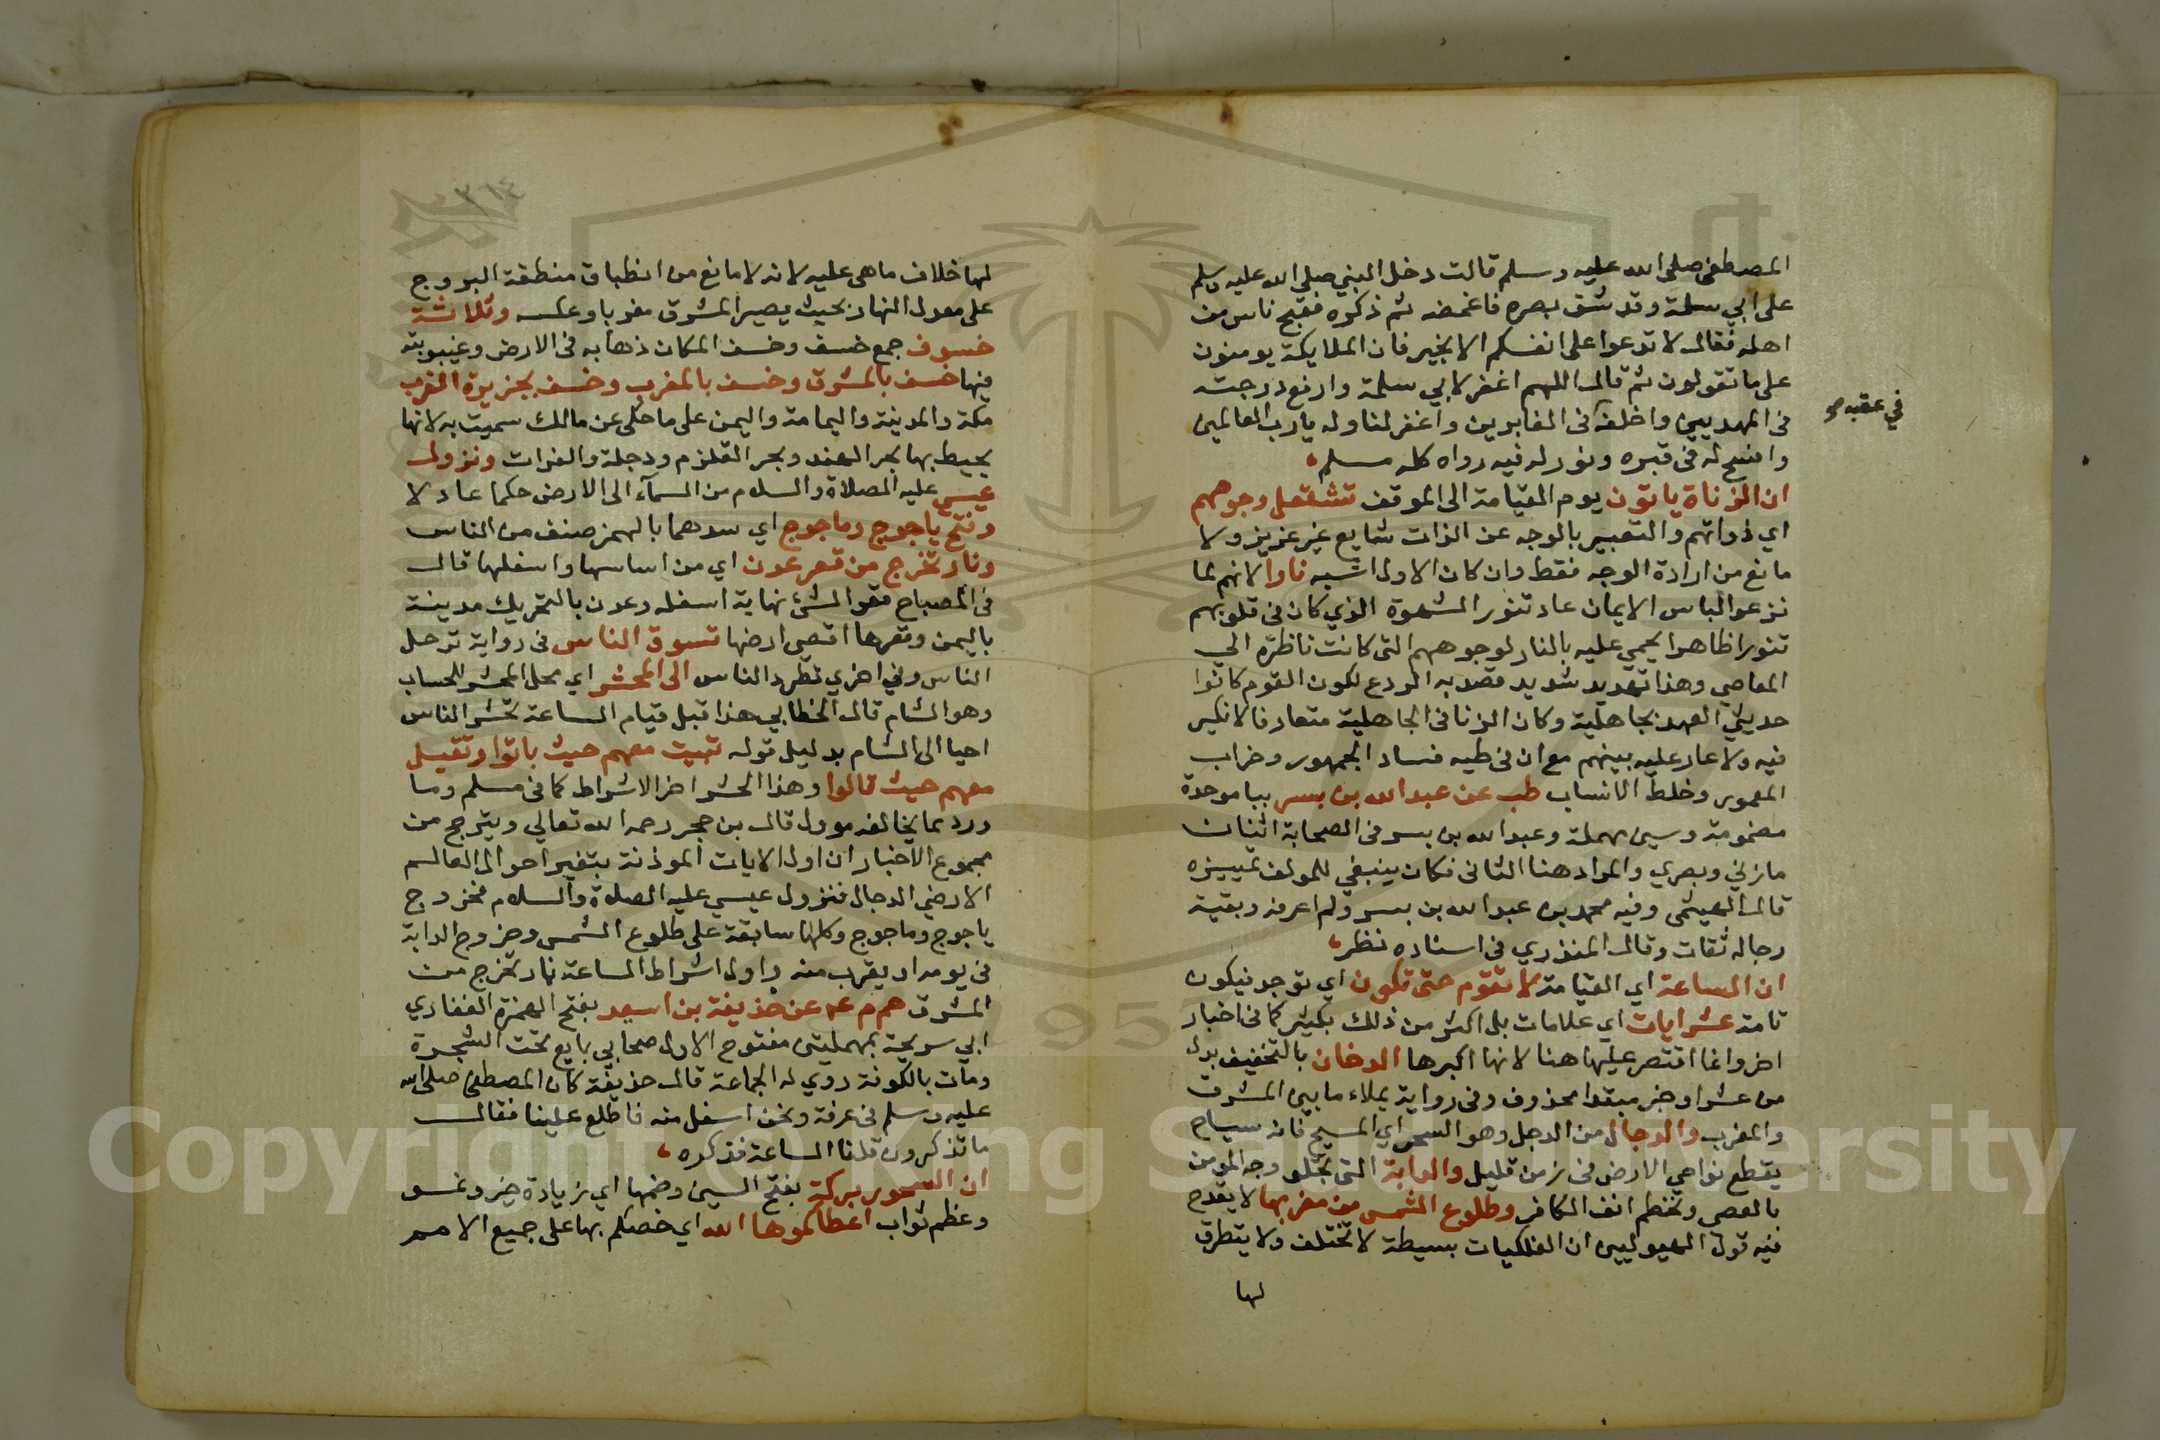 المصطفى صلى الله عليه وسلم قالت دخل النبي صلى الله عليه وسلم
على ابي سلمة وقد شق بصره فاغمضه ثم ذكره فضج ناس من
اهله فقال لا تدعوا على انفسكم الا بخير فان الملايكة يومنون
على ما تقولون ثم قال اللهم اغفر لابي سلمة وارفع درجته
في المهديين واخلفه في الغابرين واغفر لنا وله يا رب العالمين
في عقبه صح
وافسح له في قبره ونور له فيه رواه كله مسلم
ان الزناة ياتون يوم القيامة الى الموقف تشتعل وجوههم
اي ذواتهم والتعبير بالوجه عن الذات شايع غير عزيز ولا
مانع من ارادة الوجه فقط وان كان الاول اشبه نارا لانهم لما
نزعوا لباس الايمان عاد تنور الشهوة الذي كان في قلوبهم
تنورا ظاهرا يحمي عليه بالنار لوجوههم التي كانت ناظرة الي
المعاصي وهذا تهديد شديد قصد به الردع لكون القوم كانوا
حديثي العهد بجاهلية وكان الزنا في الجاهلية متعارفا لا نكير
فيه ولا عار عليه بينهم مع ان في طيه فساد الجمهور وخراب
المعمور وخلط الانساب طب عن عبد الله بن بسر ببا موحدة
مضمومة وسين مهملة وعبد الله بن بسر في الصحابة اثنان
مازني وبصري والمراد هنا الثاني فكان ينبغي للمولف تمييزه
قال الهيثمي وفيه محمد بن عبد الله بن بسر ولم اعرفه وبقية
رجاله ثقات وقال المنذري في اسناده نظر
ان الساعة اي القيامة لا تقوم حتى تكون اي توجد فيكون
تامة عشر ايات اي علامات بل اكثر من ذلك بكثير كما في اخبار
اخر وانما اقتصر عليها هنا لانها اكبرها الدخان بالتخفيف بدل
من عشر او خبر مبتدا محذوف وفي رواية يملاء ما بين المشرق
والمغرب والدجال من الدجل وهو السحر اي المسيح فانه سياح
يقطع نواحي الارض في زمن قليل والدابة التي تجلو وجه المومن
بالعصى وتخطم انف الكافر وطلوع الشمس من مغربها لا يقدح
فيه قول الهيوليين ان الفلكيات بسيطة لا تختلف ولا يتطرق
لها
٣١٤
لها خلاف ما هي عليه لانه لا مانع من انطباق منطقة البروج
على معدل النهار بحيث يصير المشرق مغربا وعكسه وثلاثة
خسوف جمع خسف وخسف المكان ذهابه في الارض وغيبوبته
فيها خسف بالمشرق وخسف بالمغرب وخسف بجزيرة العرب
مكة والمدينة واليمامة واليمن على ما حكى عن مالك سميت به لانها
يحيط بها بحر الهند وبحر القلزم ودجلة والفرات ونزول
عيسى عليه الصلاة والسلام من السماء الى الارض حكما عادلا
وفتح ياجوج وماجوج اي سدهما بالهمز صنف من الناس
ونار تخرج من قعر عدن اي من اساسها واسفلها قال
في المصباح قعر الشئ نهاية اسفله وعدن بالتحريك مدينة
باليمن وقعرها اقصى ارضها تسوق الناس في رواية ترحل
الناس وفي اخري تطرد الناس الى المحشر اي محل الحشر للحساب
وهو الشام قال الخطابي هذا قبل قيام الساعة تحشر الناس
احيا الى الشام بدليل قوله تبيت معهم حيث باتوا وتقيل
معهم حيث قالوا وهذا الحشر اخر الاشراط كما في مسلم وما
ورد بما يخالفه موول قال بن حجر رحمه الله تعالي ويترجح من
مجموع الاخبار ان اول الايات الموذنة بتغير احوال العالم
الارضي الدجال فنزول عيسي عليه الصلاة والسلام فخروج
ياجوج وماجوج وكلها سابقة على طلوع الشمس وخروج الدابة
في يومه او يقرب منه واول اشراط الساعة نار تخرج من
المشرق حم م عه عن حذيفة بن اسيد بفتح الهمزة الغفاري
ابي سريحة بمهملتين مفتوح الاول صحابي بايع تحت الشجرة
ومات بالكوفة روي له الجماعة قال حذيفة كان المصطفى صلى الله
عليه وسلم في غرفة ونحن اسفل منه فاطلع علينا فقال
ما تذكرون قلنا الساعة فذكره
ان السحور بركة بفتح السين وضمها اي زيادة خير ونمو
وعظم ثواب اعطاكموها الله اي خصكم بها على جميع الامم
Copyright © King Saud University
1957